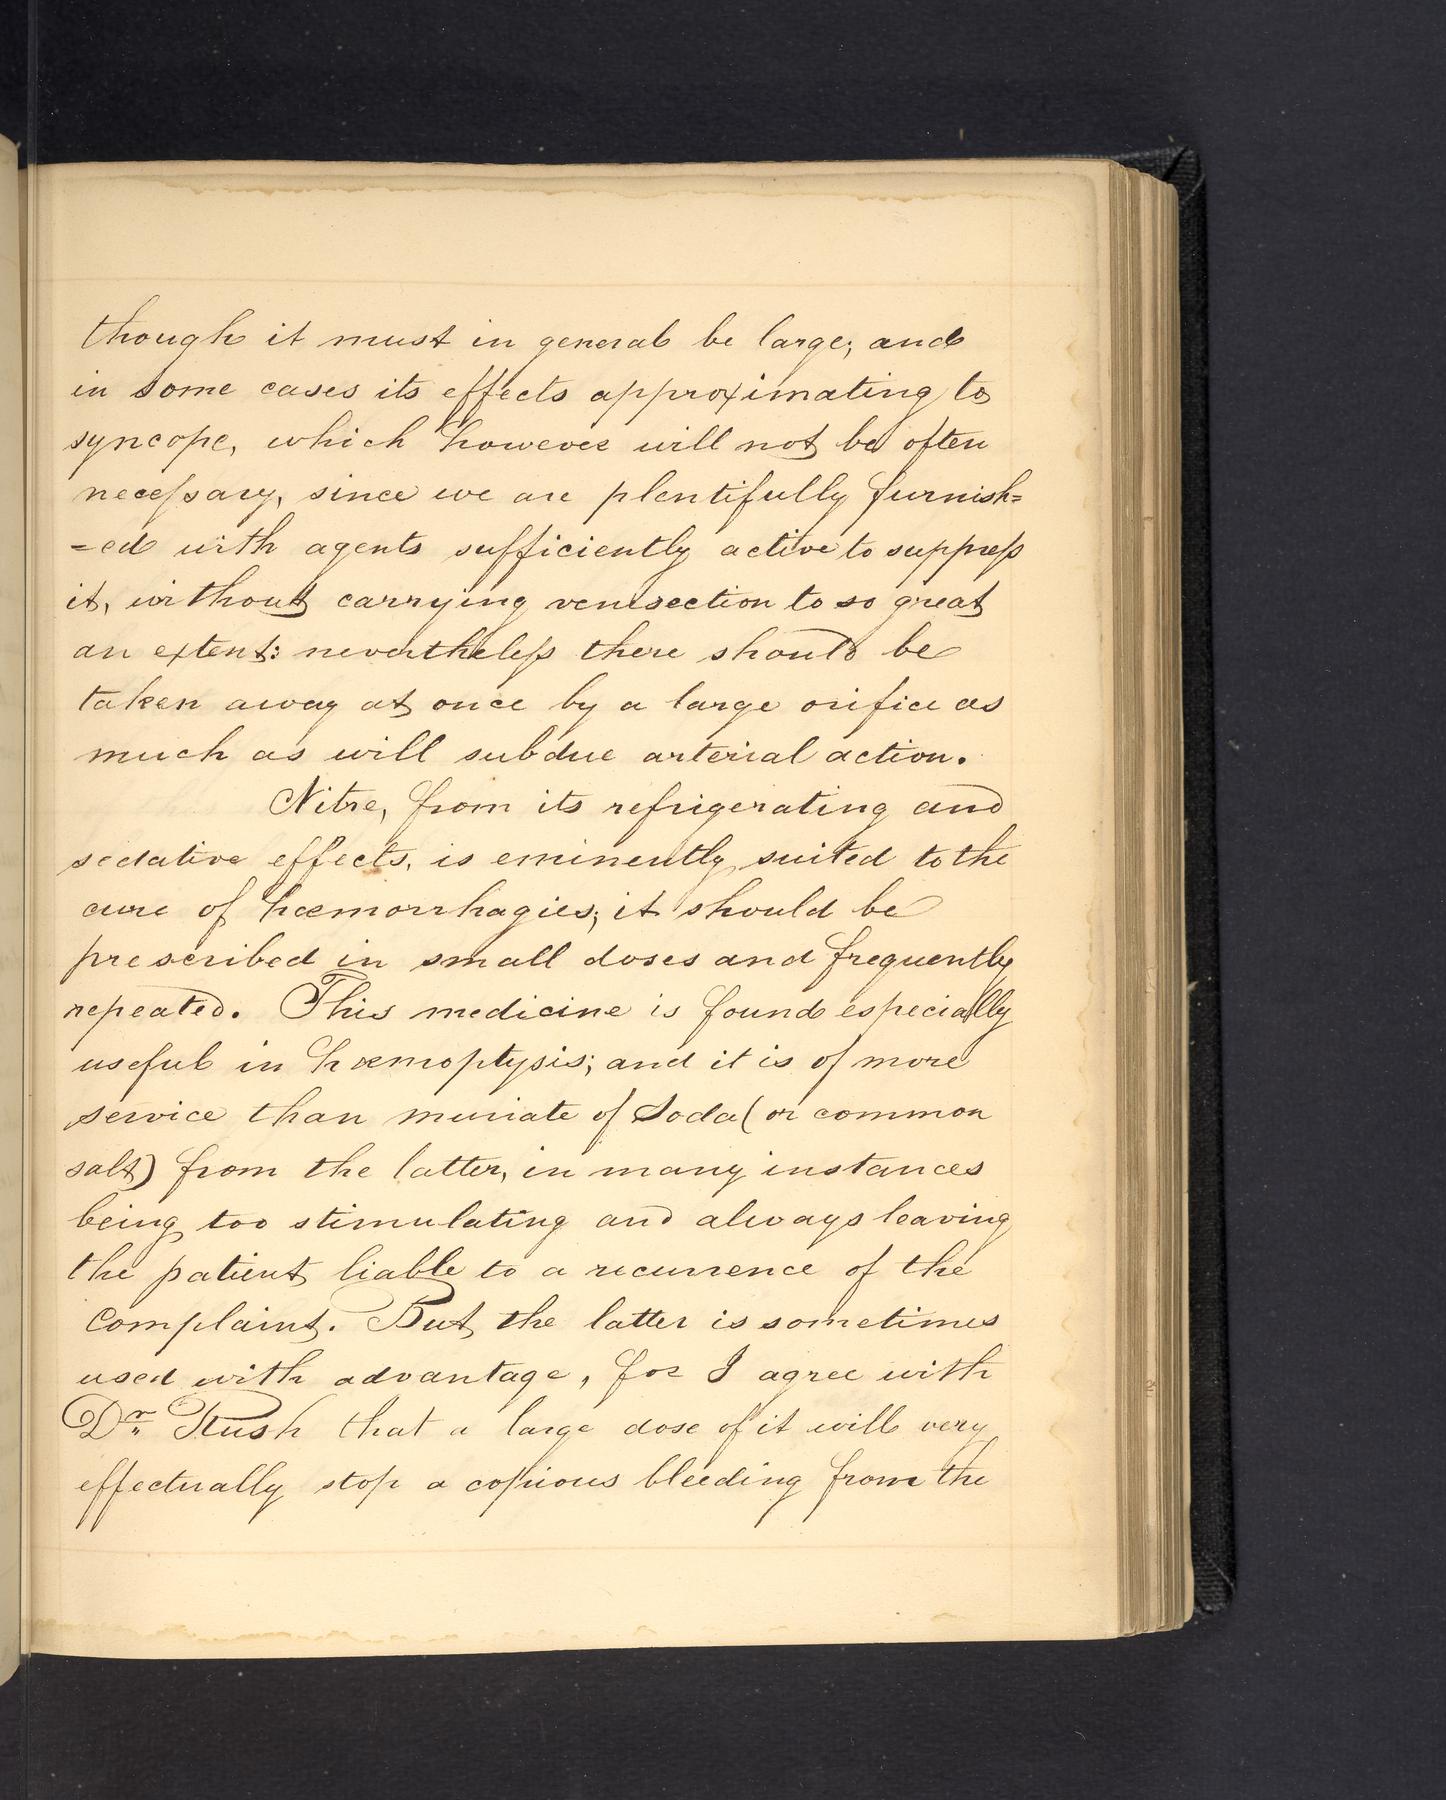 though it must in general be large; and
in some cases its effects approximating to
syncope, which however will not be often
necessary, since we are plentifully furnish=
=ed with agents sufficiently active to suppress
it, without carrying venesection to so great
an extent: nevertheless there should be
taken away at once by a large orifice as
much as will subdue arterial action.
Nitre, from its refrigerating and
sedative effects, is eminently suited to the
cure of hæmorrhagies; it should be
prescribed in small doses and frequently
repeated. This medicine is found especially
useful in hæmoptysis; and it is of more
service than muriate of Soda (or common
salt) from the latter, in many instances
being too stimulating and always leaving
the patient liable to a recurrence of the
complaint. But the latter is sometimes
used with advantage, for I agree with
Dr. Rush that a large dose of it will very
effectually stop a copious bleeding from the